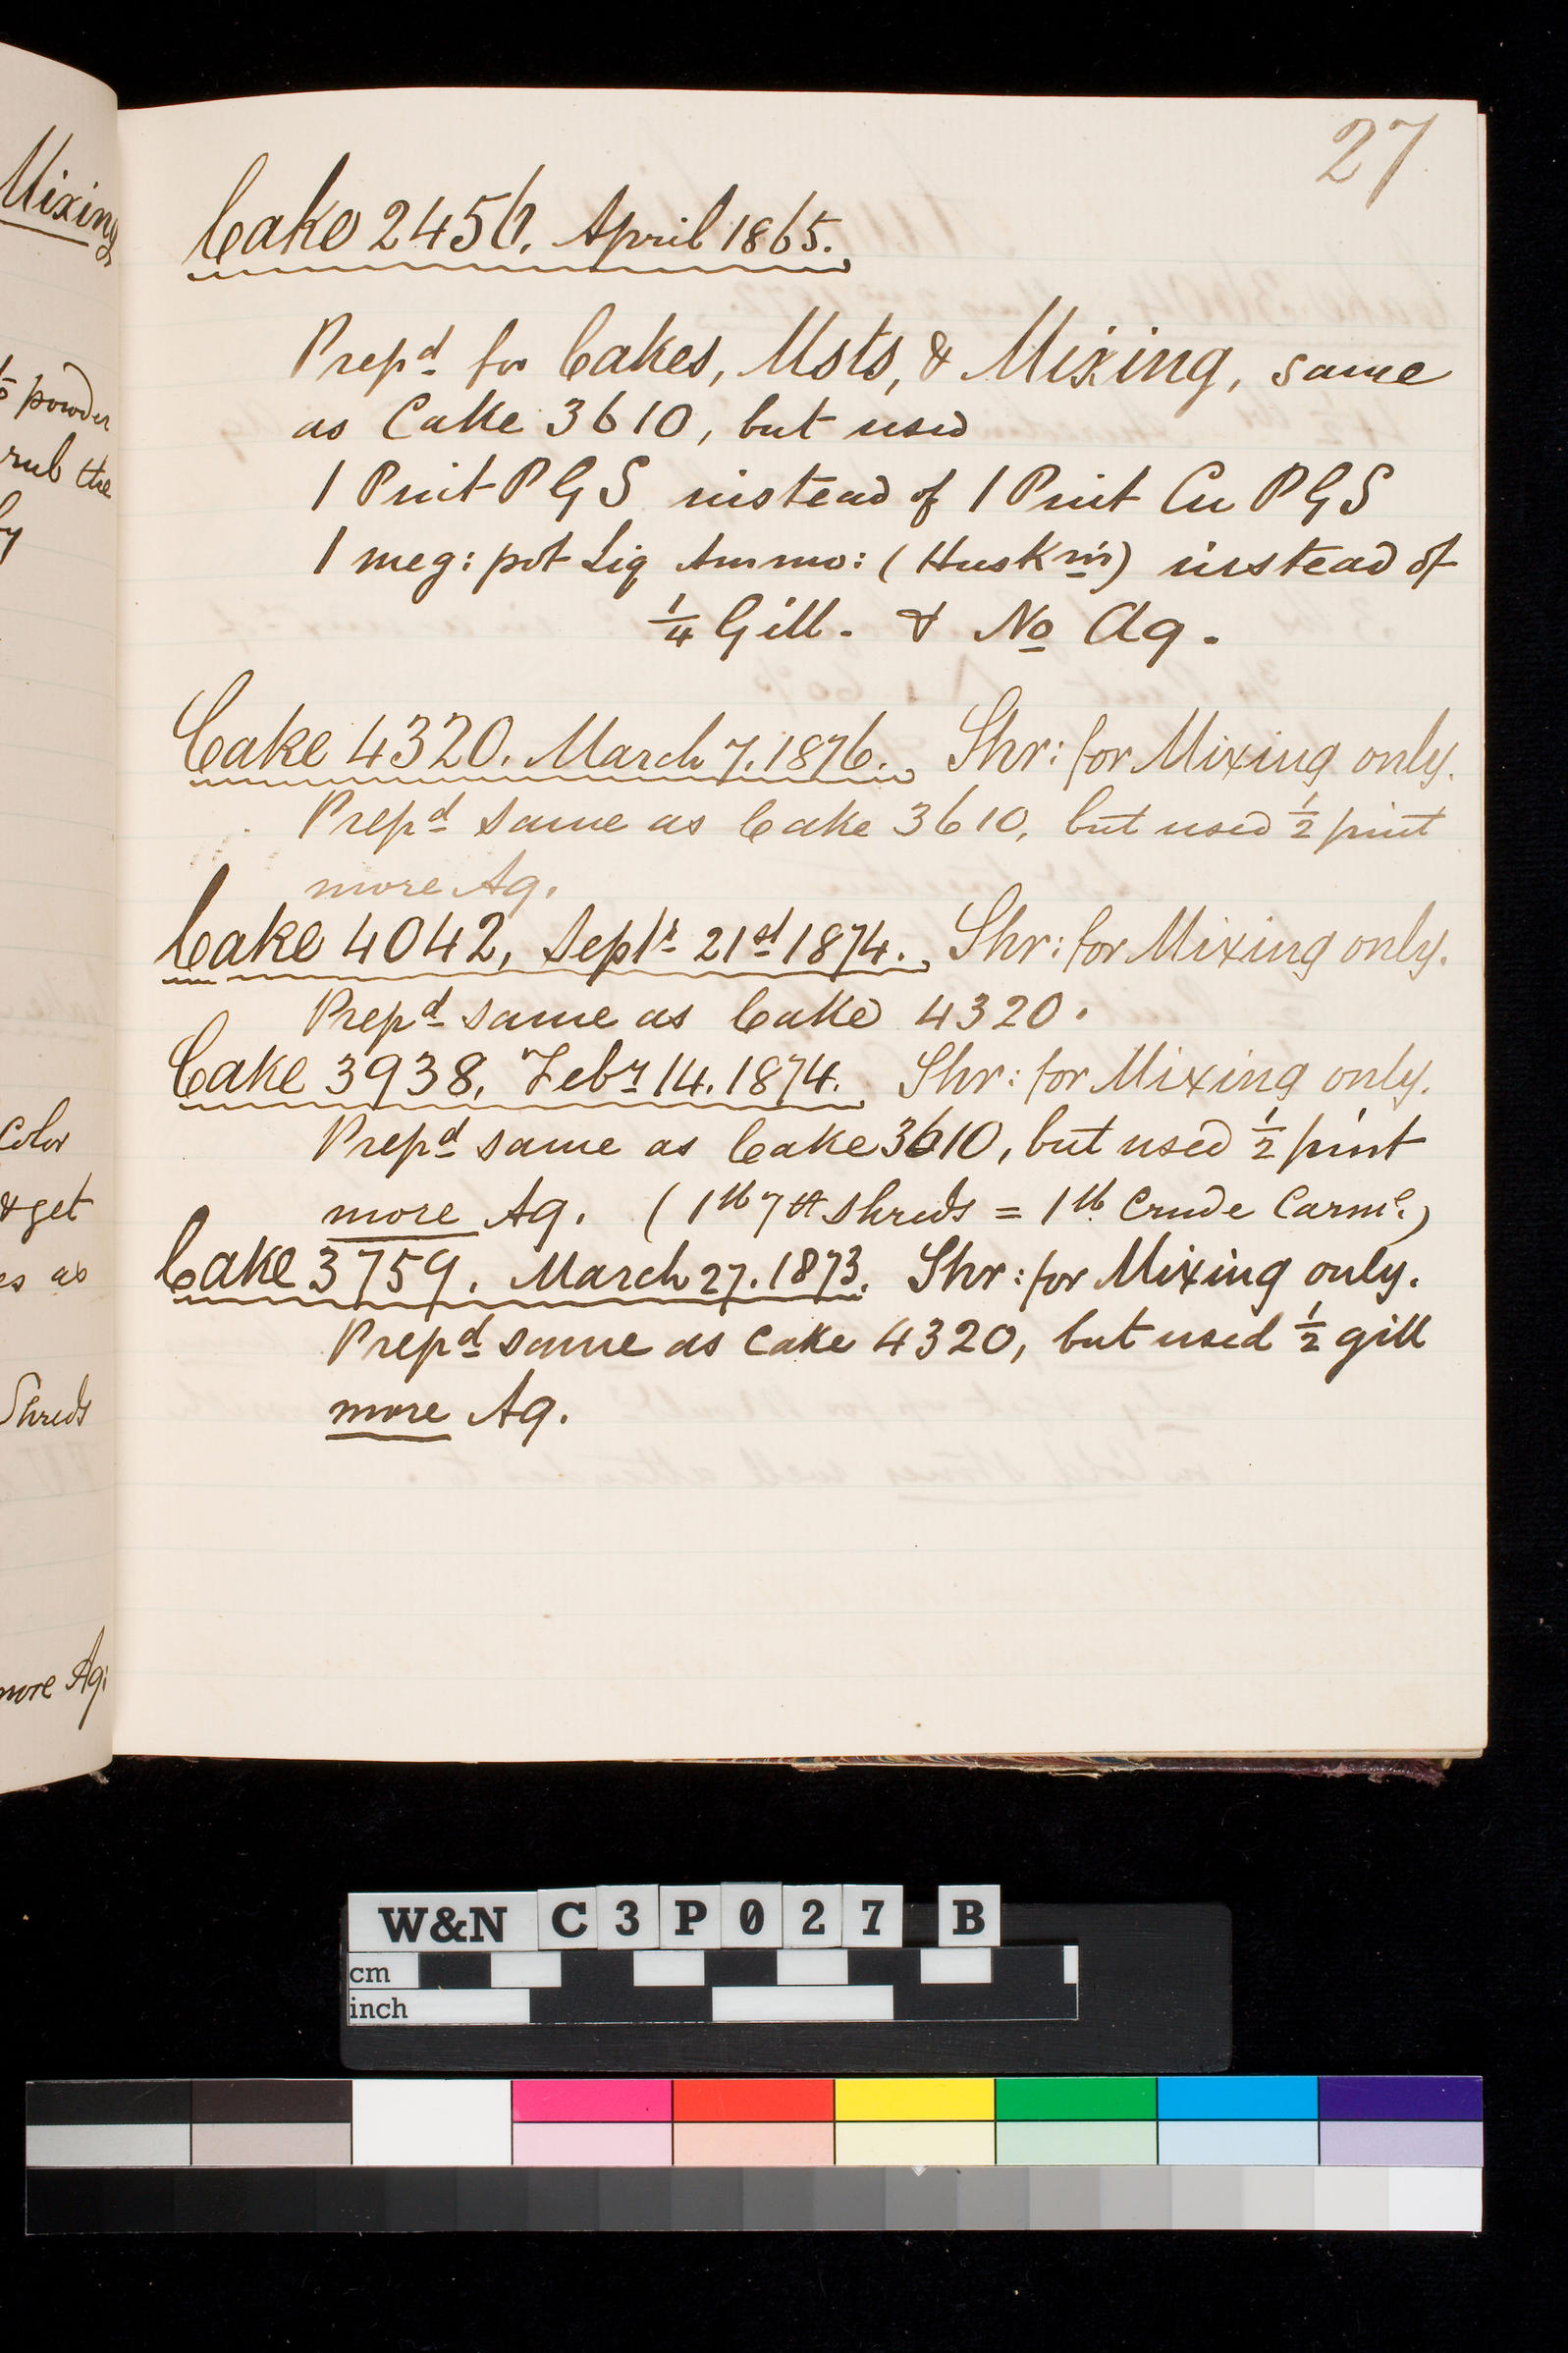 27
Cake 2456. April 1865.
Prepd for Cakes, Msts, & Mixing, same
as Cake 3610, but used
1 Pint P G S instead of 1 Pint Cu P G S
1 meg: pot Liq Ammo: (Huskn) instead of
1/4 Gill. & No Aq.
Cake 4320. March 7. 1876. Shr: for Mixing only.
Prepd same as Cake 3610, but used 1/2 pint
more Aq.
Cake 4042, Septr 21st 1874. Shr: for Mixing only.
Prepd same as Cake 4320.
Cake 3938, Feby 14. 1874. Shr: for Mixing only.
Prepd same as Cake 3610, but used 1/2 pint
more Aq. (1 lb 7 shreds = 1 lb Crude Carme.)
Cake 3759. March 27. 1873. Shr: for Mixing only.
Prepd same as Cake 4320, but used 1/2 gill
more Aq.
Mixing
powder
rub the
Color
& get
as
Shreds
more Aq:
W&N C3P027 B
cm
inch